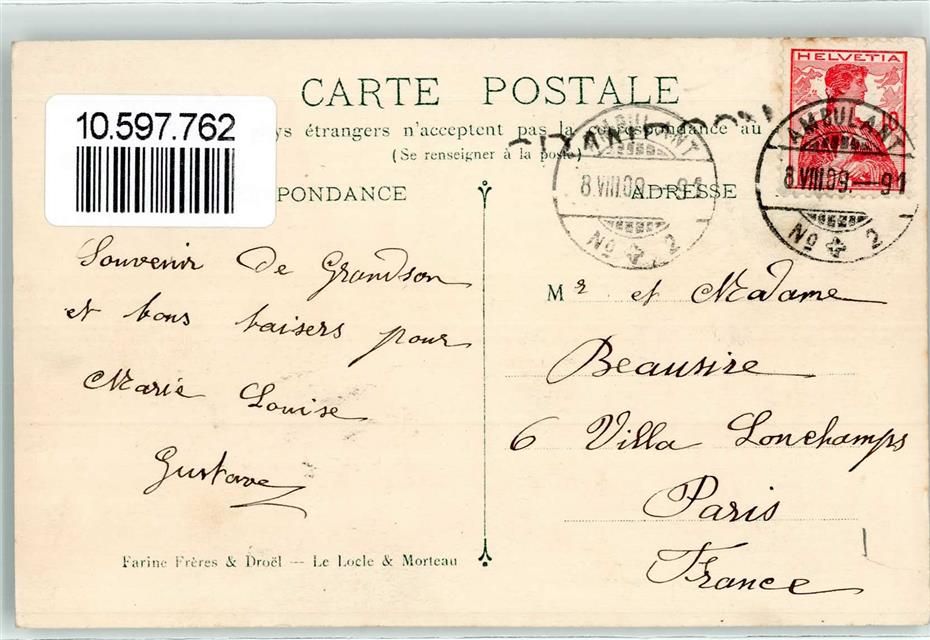 CARTE POSTALE
10.597.762
ys étrangers n'acceptent pas la correspondance au
(Se renseigner à la poste)
PONDANCE
ADRESSE
HELVETIA
10
AMBULANT
8.VIII.09.–91
No 2
AMBULANT
8.VIII.09.–91
No 2
Souvenir de Grandson
et bons baisers pour
Marie Louise
Gustave
Mr et Madame
Beausire
6 Villa Lonchamps
Paris
France
Farine Frères & Droël — Le Locle & Morteau